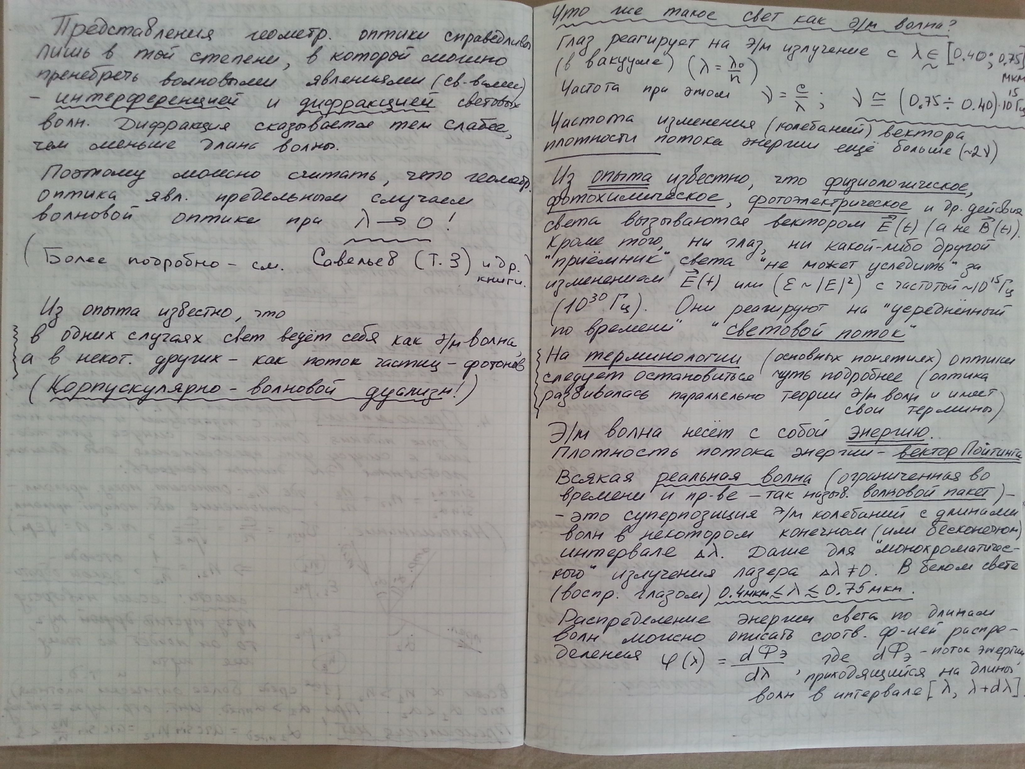 Представления геометр. оптики справедливы
лишь в той степени, в которой можно
пренебречь волновыми явлениями (св-вами)
- интерференцией и дифракцией световых
волн. Дифракция сказывается тем слабее,
чем меньше длина волны.
Поэтому можно считать, что геометр.
оптика явл. предельным случаем
волновой оптики при λ → 0 !
(Более подробно - см. Савельев (Т.3) и др. книги.)
Из опыта известно, что
в одних случаях свет ведёт себя как э/м волна,
а в некот. других - как поток частиц - фотонов
(Корпускулярно - волновой дуализм!)
Что же такое свет как э/м волна?
Глаз реагирует на э/м излучение с λ ∈ [0.40; 0,75] мкм
(в вакууме) (λ = λ₀/n)
Частота при этом ν = c/λ ; ν ≅ (0.75 ÷ 0.40)·10¹⁵ Гц
Частота изменения (колебаний) вектора
плотности потока энергии ещё больше (~2ν)
Из опыта известно, что физиологическое,
фотохимическое, фотоэлектрическое и др. действия
света вызываются вектором E⃗(t) (а не B⃗(t)).
Кроме того, ни глаз, ни какой-либо другой
"приёмник" света "не может уследить" за
изменением E⃗(t) или (ε ~ |E|²) с частотой ~10¹⁵ Гц
(10³⁰ Гц). Они реагируют на "усреднённый
по времени" "световой поток"
На терминологии (основных понятиях) оптики
следует остановиться чуть подробнее (оптика
развивалась параллельно теории э/м волн и имеет
свои термины)
Э/м волна несёт с собой энергию.
Плотность потока энергии - вектор Пойтинга
Всякая реальная волна (ограниченная во
времени и пр-ве - так назыв. волновой пакет) -
- это суперпозиция э/м колебаний с длинами
волн в некотором конечном (или бесконечном)
интервале Δλ. Даже для "монохроматичес-
кого" излучения лазера Δλ ≠ 0. В белом свете
(воспр. глазом) 0.4мкм ≤ λ ≤ 0.75мкм.
Распределение энергии света по длинам
волн можно описать соотв. ф-ией распре-
деления φ(λ) = dФэ/dλ, где dФэ - поток энергии,
приходящийся на длины
волн в интервале [λ, λ+dλ]